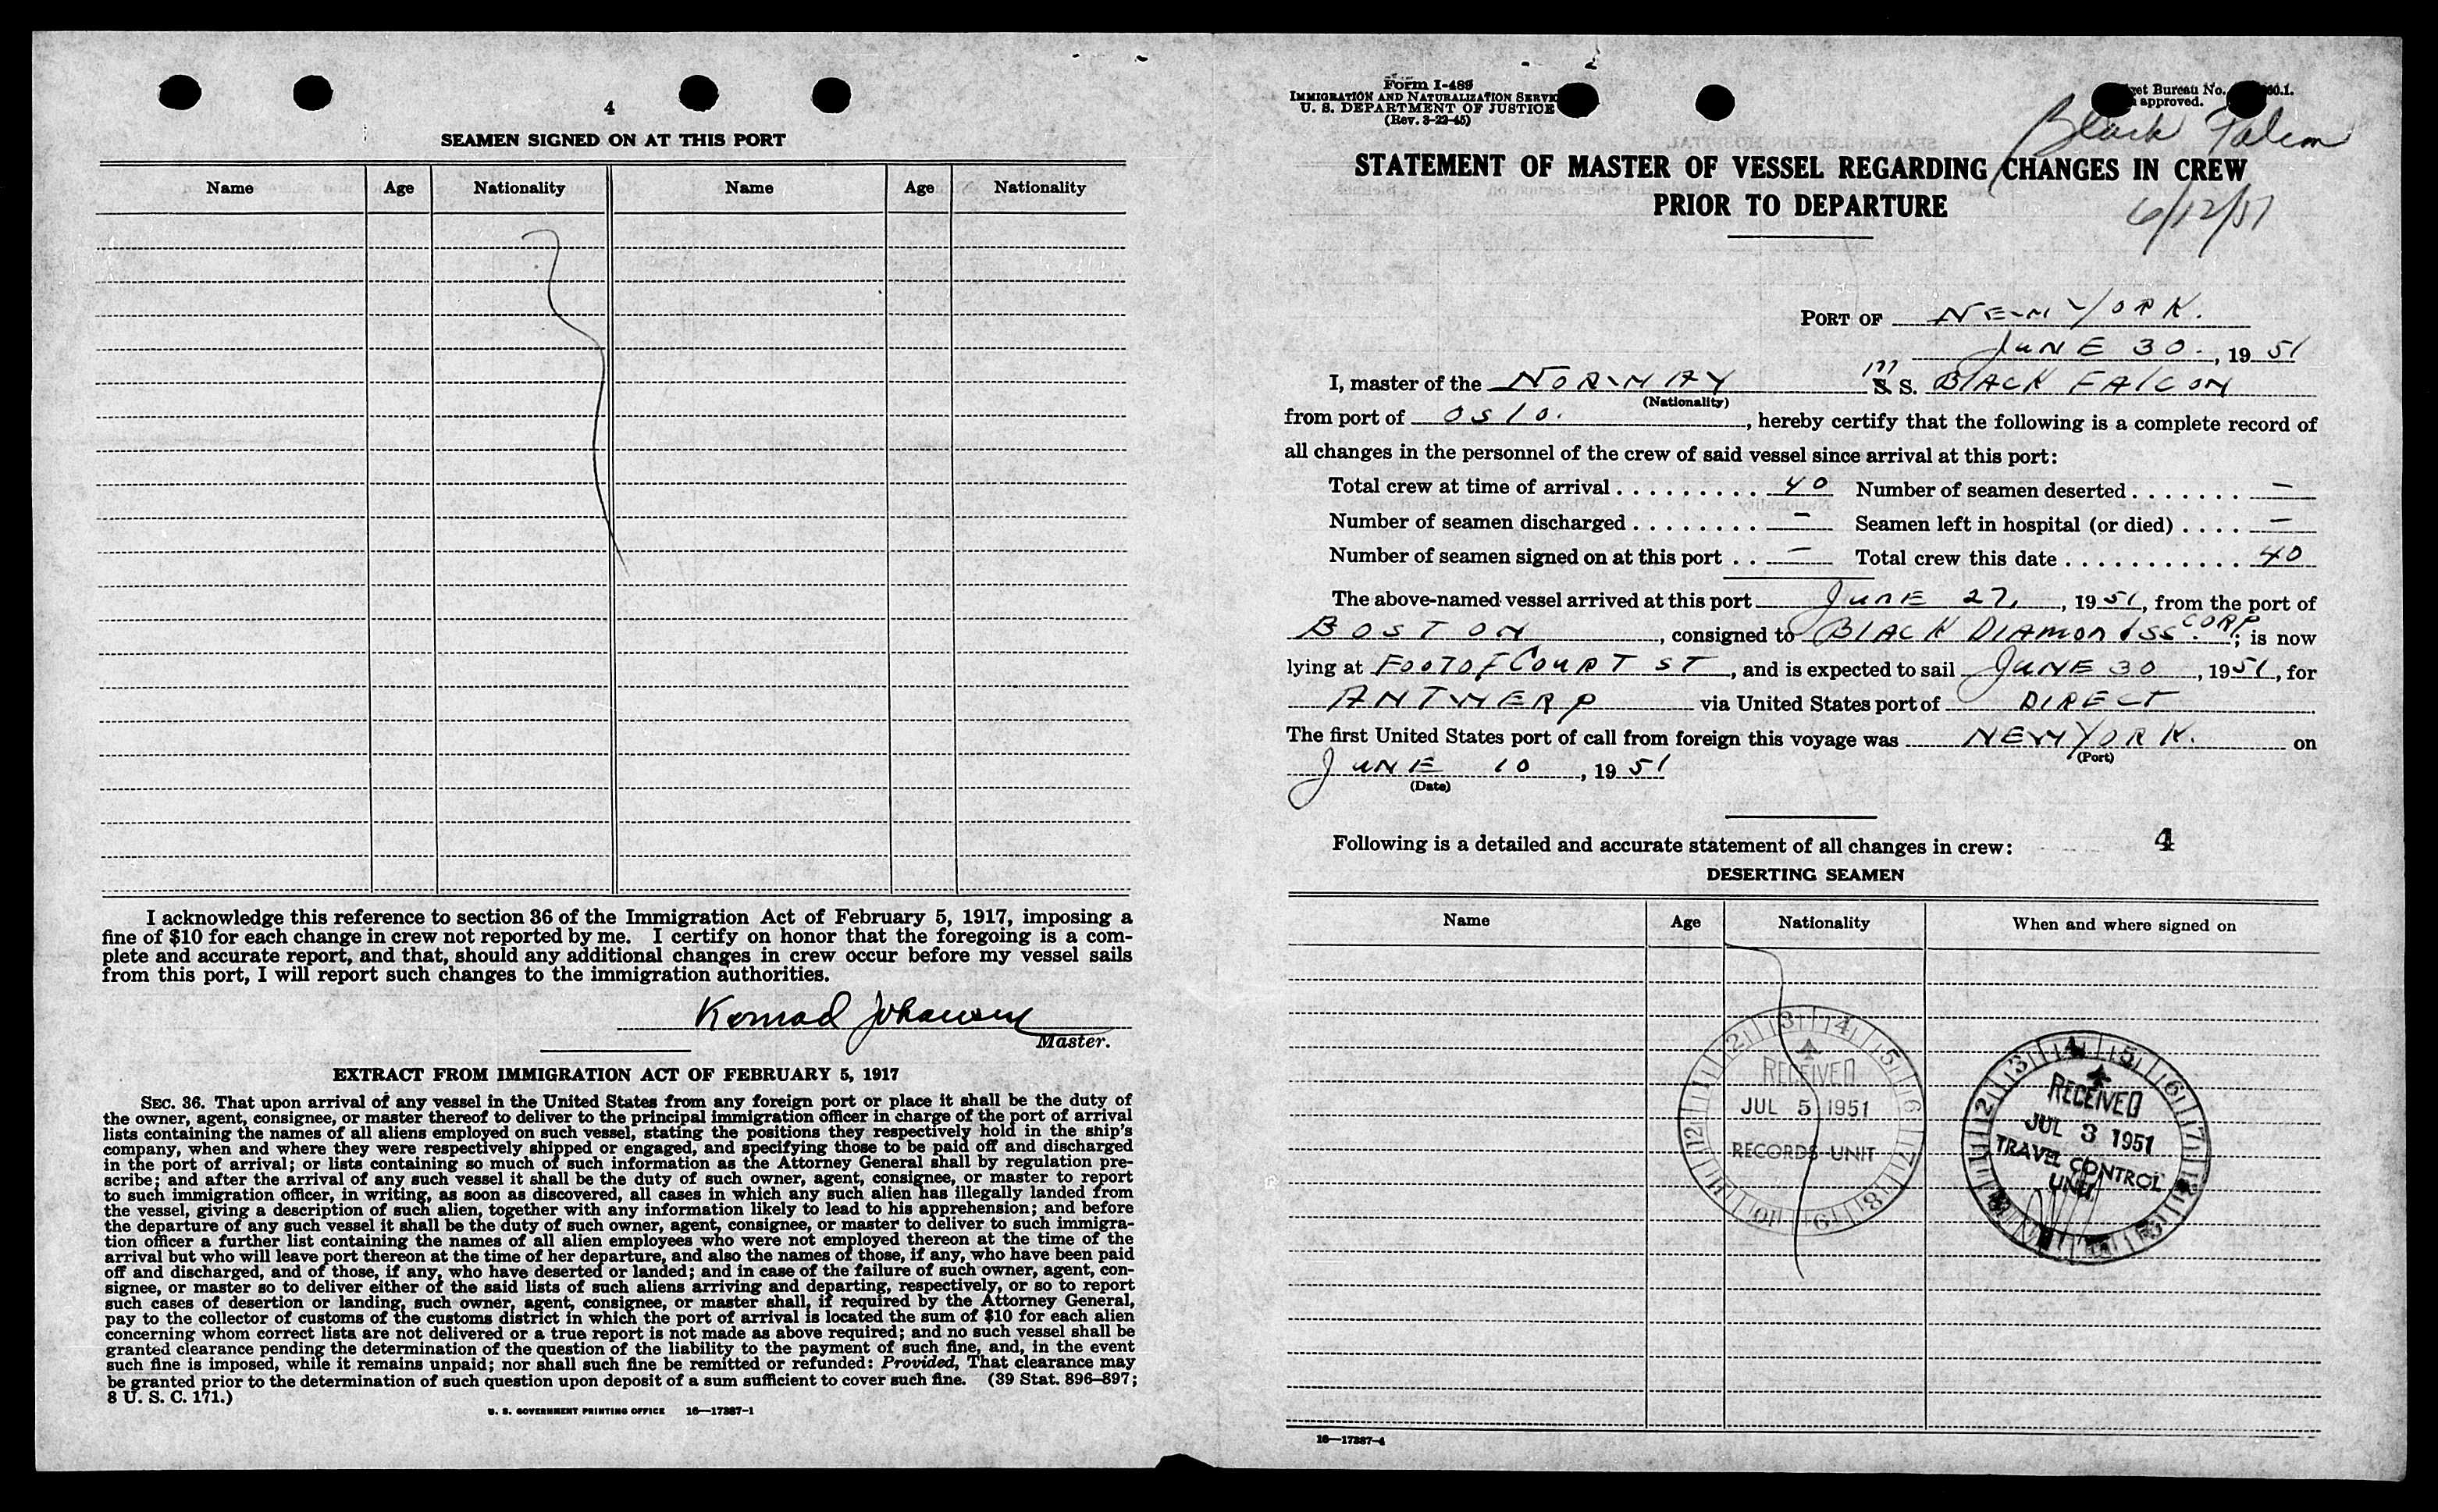 4
SEAMEN SIGNED ON AT THIS PORT
Name Age Nationality Name Age Nationality
I acknowledge this reference to section 36 of the Immigration Act of February 5, 1917, imposing a
fine of $10 for each change in crew not reported by me. I certify on honor that the foregoing is a com-
plete and accurate report, and that, should any additional changes in crew occur before my vessel sails
from this port, I will report such changes to the immigration authorities.
Konrad Johansen
Master.
EXTRACT FROM IMMIGRATION ACT OF FEBRUARY 5, 1917
SEC. 36. That upon arrival of any vessel in the United States from any foreign port or place it shall be the duty of
the owner, agent, consignee, or master thereof to deliver to the principal immigration officer in charge of the port of arrival
lists containing the names of all aliens employed on such vessel, stating the positions they respectively hold in the ship's
company, when and where they were respectively shipped or engaged, and specifying those to be paid off and discharged
in the port of arrival; or lists containing so much of such information as the Attorney General shall by regulation pre-
scribe; and after the arrival of any such vessel it shall be the duty of such owner, agent, consignee, or master to report
to such immigration officer, in writing, as soon as discovered, all cases in which any such alien has illegally landed from
the vessel, giving a description of such alien, together with any information likely to lead to his apprehension; and before
the departure of any such vessel it shall be the duty of such owner, agent, consignee, or master to deliver to such immigra-
tion officer a further list containing the names of all alien employees who were not employed thereon at the time of the
arrival but who will leave port thereon at the time of her departure, and also the names of those, if any, who have been paid
off and discharged, and of those, if any, who have deserted or landed; and in case of the failure of such owner, agent, con-
signee, or master so to deliver either of the said lists of such aliens arriving and departing, respectively, or so to report
such cases of desertion or landing, such owner, agent, consignee, or master shall, if required by the Attorney General,
pay to the collector of customs of the customs district in which the port of arrival is located the sum of $10 for each alien
concerning whom correct lists are not delivered or a true report is not made as above required; and no such vessel shall be
granted clearance pending the determination of the question of the liability to the payment of such fine, and, in the event
such fine is imposed, while it remains unpaid; nor shall such fine be remitted or refunded: Provided, That clearance may
be granted prior to the determination of such question upon deposit of a sum sufficient to cover such fine. (39 Stat. 896–897;
8 U. S. C. 171.)
U. S. GOVERNMENT PRINTING OFFICE 16—17387-1
Form I-489
IMMIGRATION AND NATURALIZATION SERVI
U. S. DEPARTMENT OF JUSTICE
(Rev. 3-22-45)
get Bureau No. 60.1.
approved.
Black Falcon
STATEMENT OF MASTER OF VESSEL REGARDING CHANGES IN CREW
PRIOR TO DEPARTURE
6/12/51
PORT OF NEW YORK.
JUNE 30., 1951
I, master of the NORWAY M S. S. BLACK FALCON
(Nationality)
from port of OSLO., hereby certify that the following is a complete record of
all changes in the personnel of the crew of said vessel since arrival at this port:
Total crew at time of arrival . . . . . . . . . 40 Number of seamen deserted . . . . . . . —
Number of seamen discharged . . . . . . . . — Seamen left in hospital (or died) . . . . —
Number of seamen signed on at this port . . — Total crew this date . . . . . . . . . . . 40
The above-named vessel arrived at this port JUNE 27, 1951, from the port of
BOSTON, consigned to BLACK DIAMOND SS CORP.; is now
lying at FOOT OF COURT ST, and is expected to sail JUNE 30, 1951, for
ANTWERP via United States port of DIRECT
The first United States port of call from foreign this voyage was NEW YORK. on
(Port)
JUNE 10, 1951
(Date)
Following is a detailed and accurate statement of all changes in crew: 4
DESERTING SEAMEN
Name Age Nationality When and where signed on
RECEIVED
JUL 5 1951
RECORDS UNIT
RECEIVED
JUL 3 1951
TRAVEL CONTROL
UNIT
16—17387-4